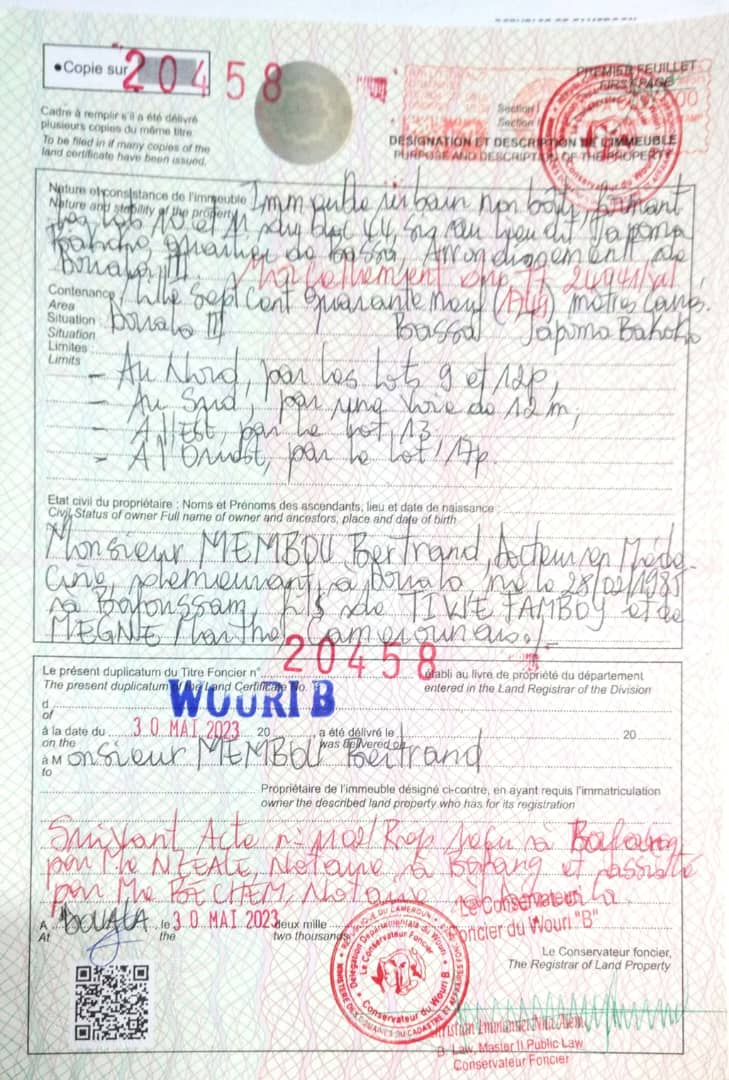 •Copie sur
20458
PREMIER FEUILLET
FIRST PAGE
Section I
Section I
Cadre à remplir s'il a été délivré
plusieurs copies du même titre.
To be filed in if many copies of the
land certificate have been issued.
DESIGNATION ET DESCRIPTION DE L'IMMEUBLE
PURPOSE AND DESCRIPTION OF THE PROPERTY
Nature et consistance de l'immeuble Immeuble urbain non bâti, formant
Nature and stability of the property
les lots 10 et 11 du bloc 44, sis au lieu dit Japoma
Bahoho, quartier de Bassa, Arrondissement de
Douala III. Morcellement du TF 24941/
Contenance Mille sept cent quarante neuf (1749) mètres carrés.
Area
Situation Douala III Bassa Japoma Bahoho
Situation
Limites
Limits
- Au Nord, par les lots 9 et 12p,
- Au Sud, par une voie de 12 m,
- A l'Est, par le lot 13.
- A l'Ouest, par le lot 17p.
Etat civil du propriétaire : Noms et Prénoms des ascendants, lieu et date de naissance
Civil Status of owner Full name of owner and ancestors, place and date of birth
Monsieur MEMBOU Bertrand, docteur en Méde-
cine, demeurant à Douala, né le 28/02/1985
à Bafoussam, fils de FAMBOU et de
MEGNE Marthe, Camerounais./-
20458
Le présent duplicatum du Titre Foncier n° établi au livre de propriété du département
The present duplicatum of the Land Certificate No. entered in the Land Registrar of the Division
d WOURI B
of
à la date du 30 MAI 2023 20 , a été délivré le 20
on the was delivered on
à Monsieur MEMBOU Bertrand
to
Propriétaire de l'immeuble désigné ci-contre, en ayant requis l'immatriculation
owner the described land property who has for its registration
Suivant Acte n° 1102/Rep reçu à Bafang
par Me NZEALE, Notaire à Bafang et assisté
par Me BECHEM, Notaire à
A DOUALA, le 30 MAI 2023 deux mille
At the two thousands
Le Conservateur
Foncier du Wouri "B"
Le Conservateur foncier,
The Registrar of Land Property
REPUBLIQUE DU CAMEROUN
Délégation Départementale du Wouri
Le Conservateur Foncier
Conservateur du Wouri B
MINISTERE DES DOMAINES DU CADASTRE ET AFFAIRES
B. Law, Master II Public Law
Conservateur Foncier